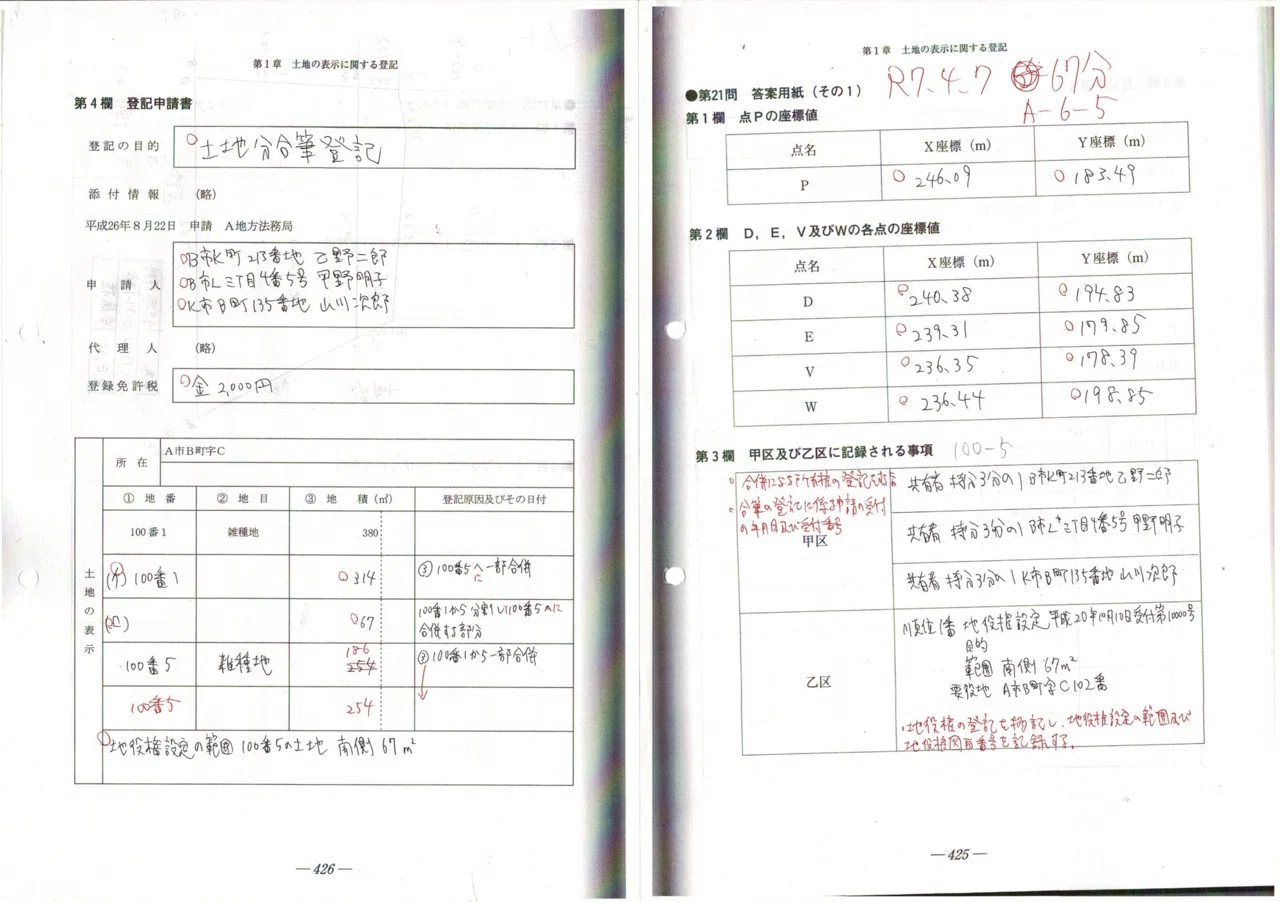 第1章 土地の表示に関する登記
第4欄 登記申請書
登記の目的
土地分合筆登記
添付情報 (略)
平成26年8月22日 申請 A地方法務局
申請人
B市K町213番地 乙野二郎
B市L三丁目4番5号 甲野明子
K市B町135番地 山川次郎
代理人 (略)
登録免許税
金 2,000円
土地の表示
所在 A市B町字C
①地番 ②地目 ③地積(㎡) 登記原因及びその日付
100番1 雑種地 380
(イ) 100番1 314 ③100番5へ一部合併
に
(ロ) 67 100番1から分割して100番5に
合併する部分
186
100番5 雑種地 254 ③100番1から一部合併
100番5 254
地役権設定の範囲 100番5の土地 南側 67㎡
―426―
第1章 土地の表示に関する登記
R7.4.7 67分
A-6-5
●第21問 答案用紙(その1)
第1欄 点Pの座標値
点名 X座標(m) Y座標(m)
P 246.09 183.49
第2欄 D,E,V及びWの各点の座標値
点名 X座標(m) Y座標(m)
D 240.38 194.83
E 239.31 179.85
V 236.35 178.39
W 236.44 198.85
第3欄 甲区及び乙区に記録される事項 100-5
甲区
合併による所有権の登記
合筆の登記に係る申請の受付
の年月日及び受付番号
共有者 持分3分の1 B市K町213番地 乙野二郎
共有者 持分3分の1 B市L三丁目4番5号 甲野明子
共有者 持分3分の1 K市B町135番地 山川次郎
乙区
順位1番 地役権設定 平成20年10月10日受付第10000号
目的
範囲 南側 67㎡
要役地 A市B町字C102番
地役権の登記を転記し、地役権設定の範囲及び
地役権図面番号を記録する。
―425―